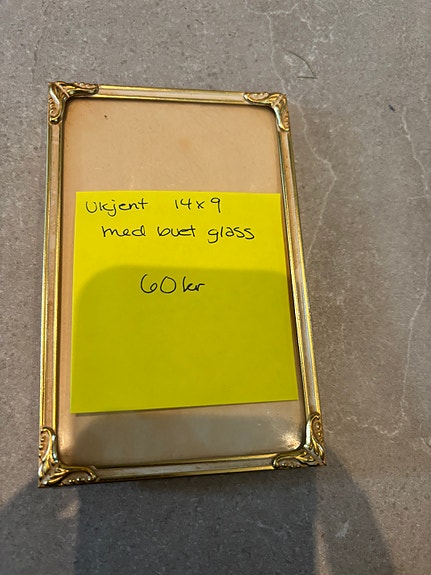 Ukjent 14x9
med buet glass
60 kr